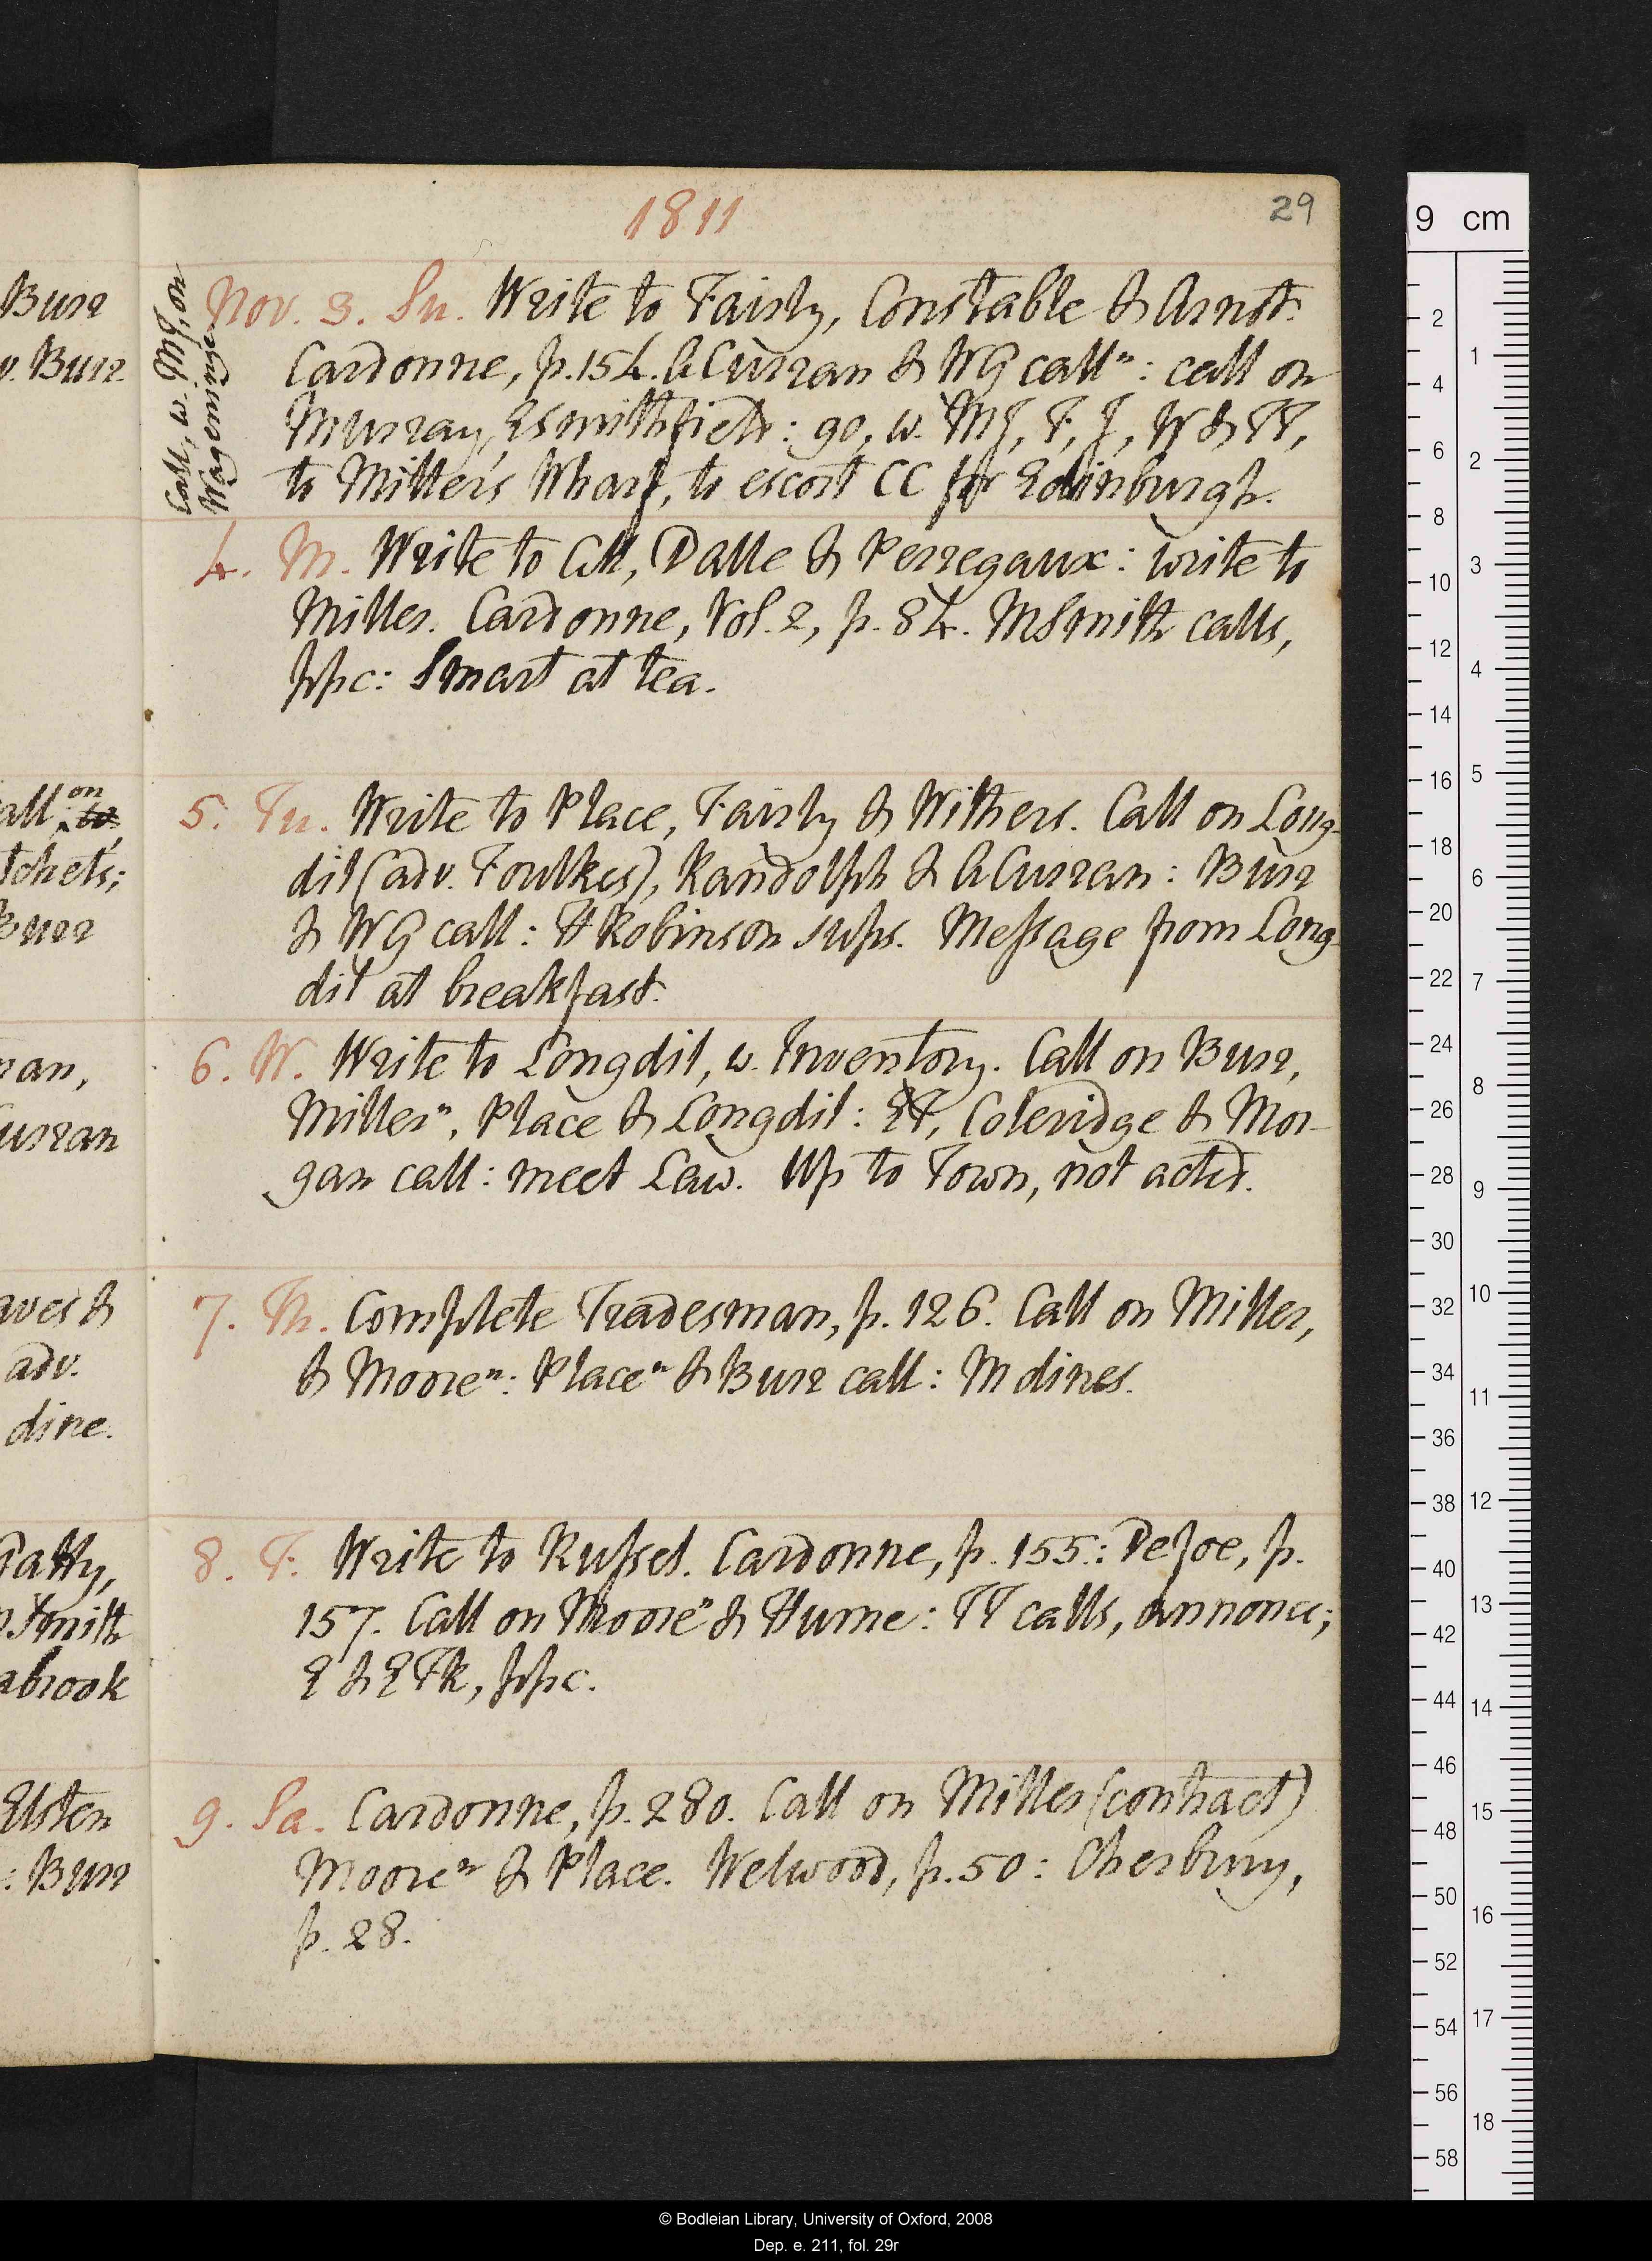 1811
29
Call, w. MJ, on
Wageninger
Nov. 3. Su. Write to Fairly, Constable & Arnot.
Cardonne, p. 154. ACurran & WG calln: call on
Murray, ESmithfield: go, w. MJ, F, J, W & TT,
to Miller's Wharf, to escort CC for Edinburgh.
4. M. Write to CM, Dalle & Perregaux: write to
Miller. Cardonne, Vol. 2, p. 84. MSmith calls,
ppc: Smart at tea.
5. Tu. Write to Place, Fairly & Withers. Call on Long-
dil (adv. Foulkes), Randolph & ACurran: Burr
& WG call: HRobinson sups. Message from Long-
dil at breakfast.
6. W. Write to Longdil, w. Inventory. Call on Burr,
Millern, Place & Longdil: ET, Coleridge & Mor-
gan call: meet Law. Up to Town, not acted.
7. Th. Complete Tradesman, p. 126. Call on Miller,
& Mooren: Placen & Burr call: M dines.
8. F. Write to Russel. Cardonne, p. 155: DeFoe, p.
157. Call on Mooren & Hume: TT calls, annonce;
E & EFk, ppc.
9. Sa. Cardonne, p. 280. Call on Miller (contract)
Mooren & Place. Welwood, p. 50: Cherbury,
p. 28.
Burr
v. Burr
all on to
tchets;
Burr
man,
urran
aves &
adv.
dine.
Patty,
Smith
abrook
Elsten
: Burr
9 cm
2
4
6
8
10
12
14
16
18
20
22
24
26
28
30
32
34
36
38
40
42
44
46
48
50
52
54
56
58
1
2
3
4
5
6
7
8
9
10
11
12
13
14
15
16
17
18
© Bodleian Library, University of Oxford, 2008
Dep. e. 211, fol. 29r